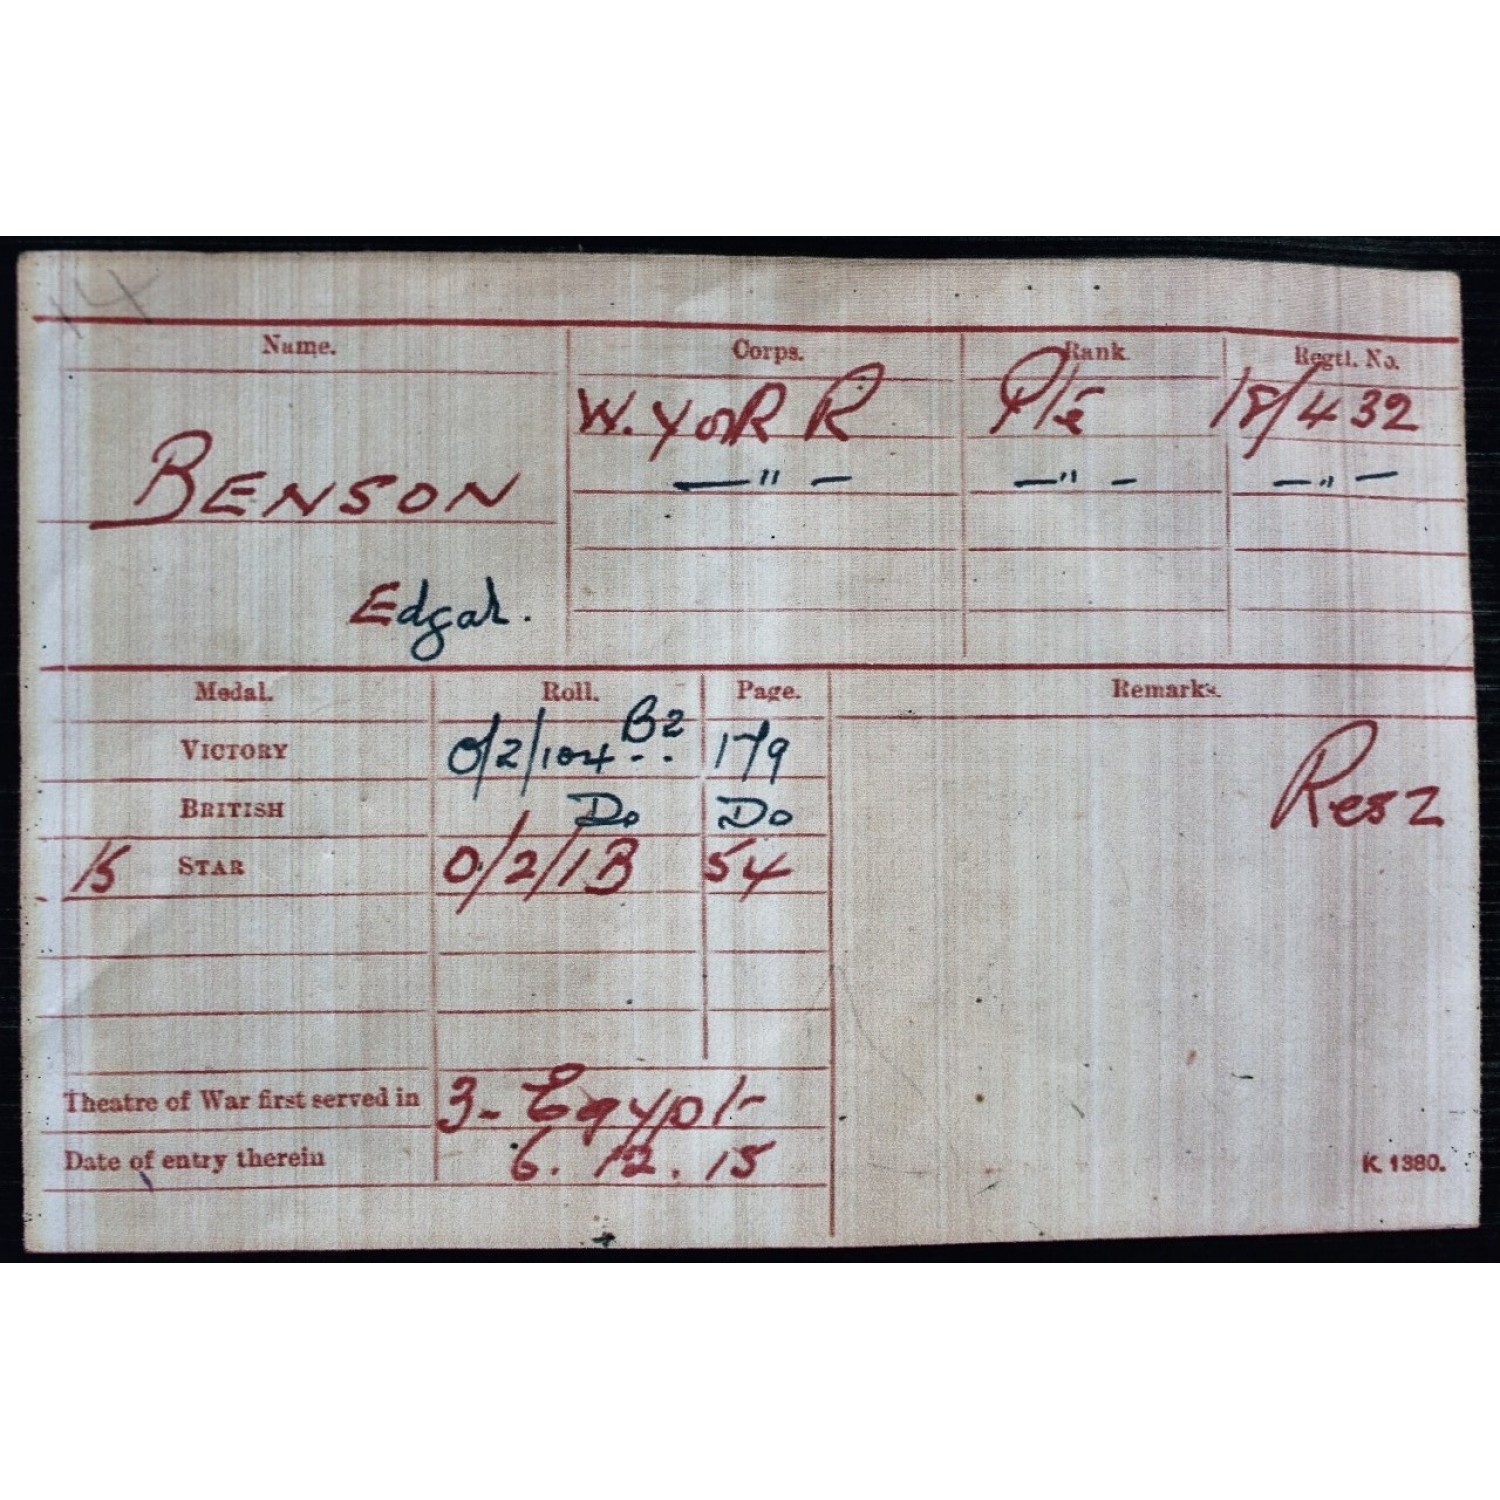 14
Name. Corps. Rank. Regtl. No.
W. Yor R Pte 18/432
BENSON —"— —"— —"—
Edgar.
Medal. Roll. Page. Remarks.
VICTORY 0/2/104 B2 179
BRITISH Do Do Res Z
15 STAR 0/2/1B 54
Theatre of War first served in 3- Egypt
Date of entry therein 6.12.15
K. 1380.